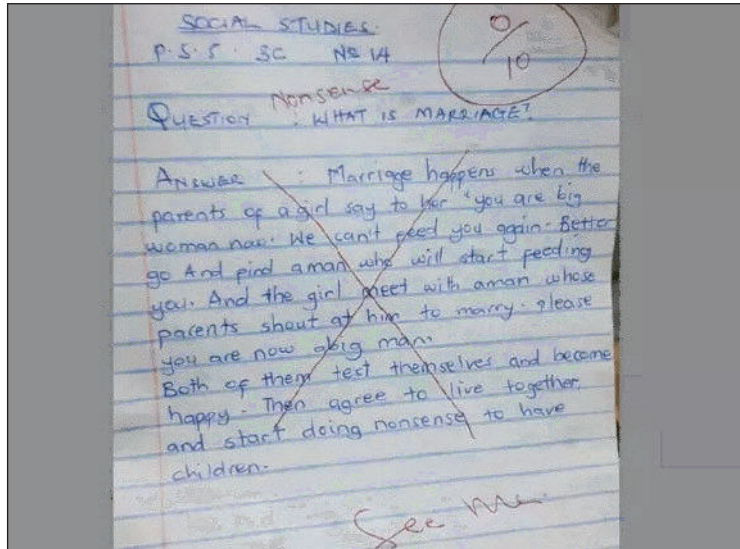 SOCIAL STUDIES.
P.S.5. 3C No 14
0/10
Nonsense
QUESTION : WHAT IS MARRIAGE?
ANSWER : Marriage happens when the
parents of a girl say to her "you are big
woman now. We can't feed you again. Better
go And find a man who will start feeding
you. And the girl meet with a man whose
parents shout at him to marry. please
you are now a big man.
Both of them test themselves and become
happy. Then agree to live together
and start doing nonsense to have
children.
See Me